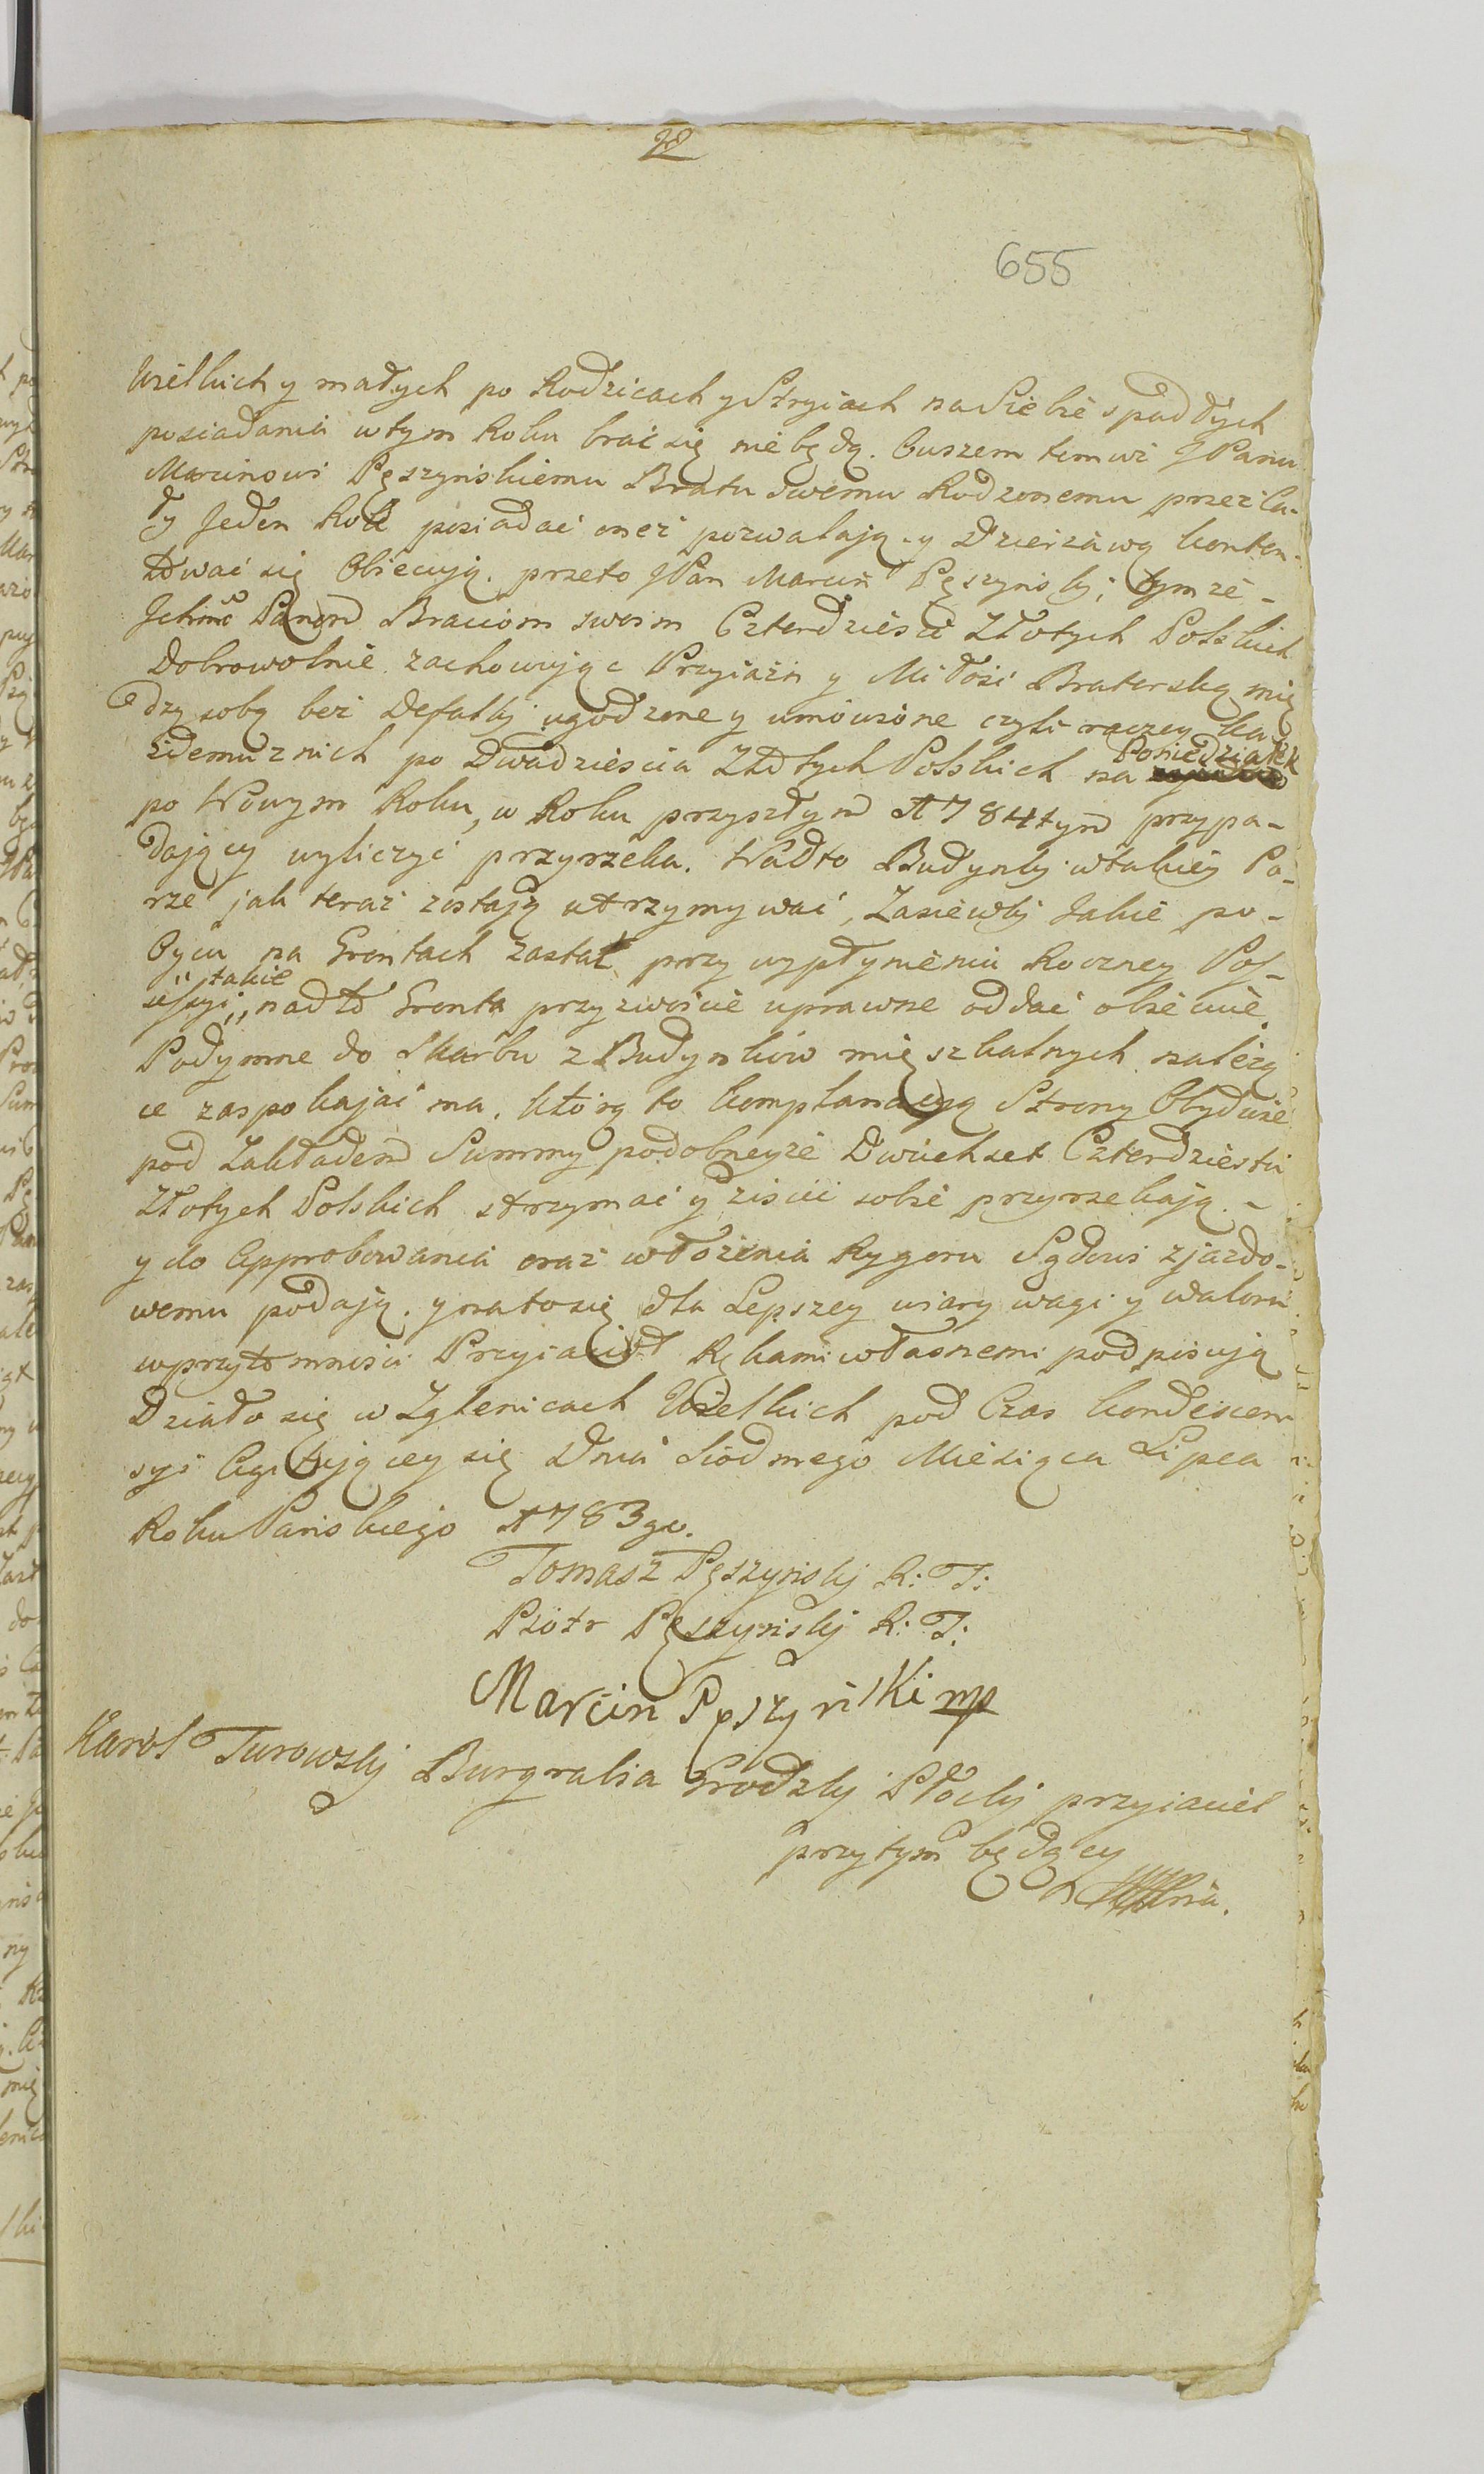 22
655
Wielkich y małych po Rodzicach y Stryiach na Siebie spadłych
posiadania w tym Roku brać się nie będą. Owszem temuż JPanu
Marcinowi Pęszyńskiemu Bratu swemu Rodzonemu przez ca-
ły Jeden Rok posiadać oneż pozwalają. y Dzierżawą konten-
tować się Obiecują. przeto JPan Marcin Pęszyński, tymże-
Ichmć Panom Braciom swoim Czterdzieści Złotych Polskich
Dobrowolnie zachowując Przyiaźń y Miłość Braterską mię
dzy sobą bez Defalki ugodzone y umówione czyli raczey ka-
żdemu z nich po Dwadzieścia Złotych Polskich na Poniedziałek
po Nowym Roku, w Roku przyszłym 1784tym przypa-
dający wyliczyć przyrzeka. Nadto Budynki w takiey Po-
rze jak teraz zostają utrzymywać, Zasiewki Jakie po-
byciu na Grontach zastał przy wypłynieniu Roczney Pos-
sessyi takie, nadto Gronta przyzwoicie uprawne oddać obiecuie.
Podymne do Skarbu z Budynków mięszkalnych należą
ce zaspokajać ma. którą to komplanacyą Strony Obydwie
pod Zakładem Summy podobneyże Dwuchset Czterdziestu
Złotych Polskich strzymać y ziścić sobie przyrzekają. -
y do Approbowania oraz włożenia Rygoru Sądowi zjazdo-
wemu podają. y na to się dla Lepszey wiary wagi y waloru
w przytomności Przyiaciół Rękami własnemi podpisują
Działo się w Zglenicach Wielkich pod Czas kondescen
syi Agitującey się Dnia Siódmego Miesiąca Lipca
Roku Pańskiego 1783go.
Tomasz Pęszyński R: T:
Piotr Pęszyński R: T:
Marcin Pęszyński mp
Karol Turowski Burgrabia Grodzki Płocki przyiaciel
przytym będący